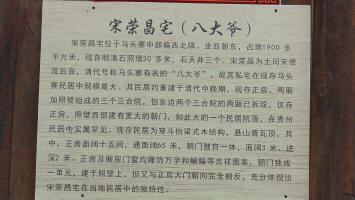 宋荣昌宅（八大爷）
宋荣昌宅位于马头寨中部偏西北隅，坐西朝东，占地1900 多
平方米，现存明清石照墙30 多米，石天井三个。宋荣昌为土司宋德
茂后裔，清代号称马头寨有名的“八大爷”，故其私宅在现存马头
寨民居中规模最大。其民居约重建于清代中晚期，现存正房，两厢
加照壁组成的三个三合院，但东边两个三合院的两厢已拆毁，仅存
正房，照壁西部建有宽大的朝门，如此大的一个民居院落，在贵州
民居中实属罕见。现存民居为穿斗抬梁式木结构，悬山青瓦顶，其
中，正房面阔十五间，通面阔65 米，朝门独置一体，面阔3米，进
深2 米。正房及厢房门窗均雕饰万字和蝙蝠等吉祥图案，朝门独成
一单元，建于照壁上，但又与正房大门朝向完全相反，充分体现出
宋荣昌宅在当地民居中的独特性。